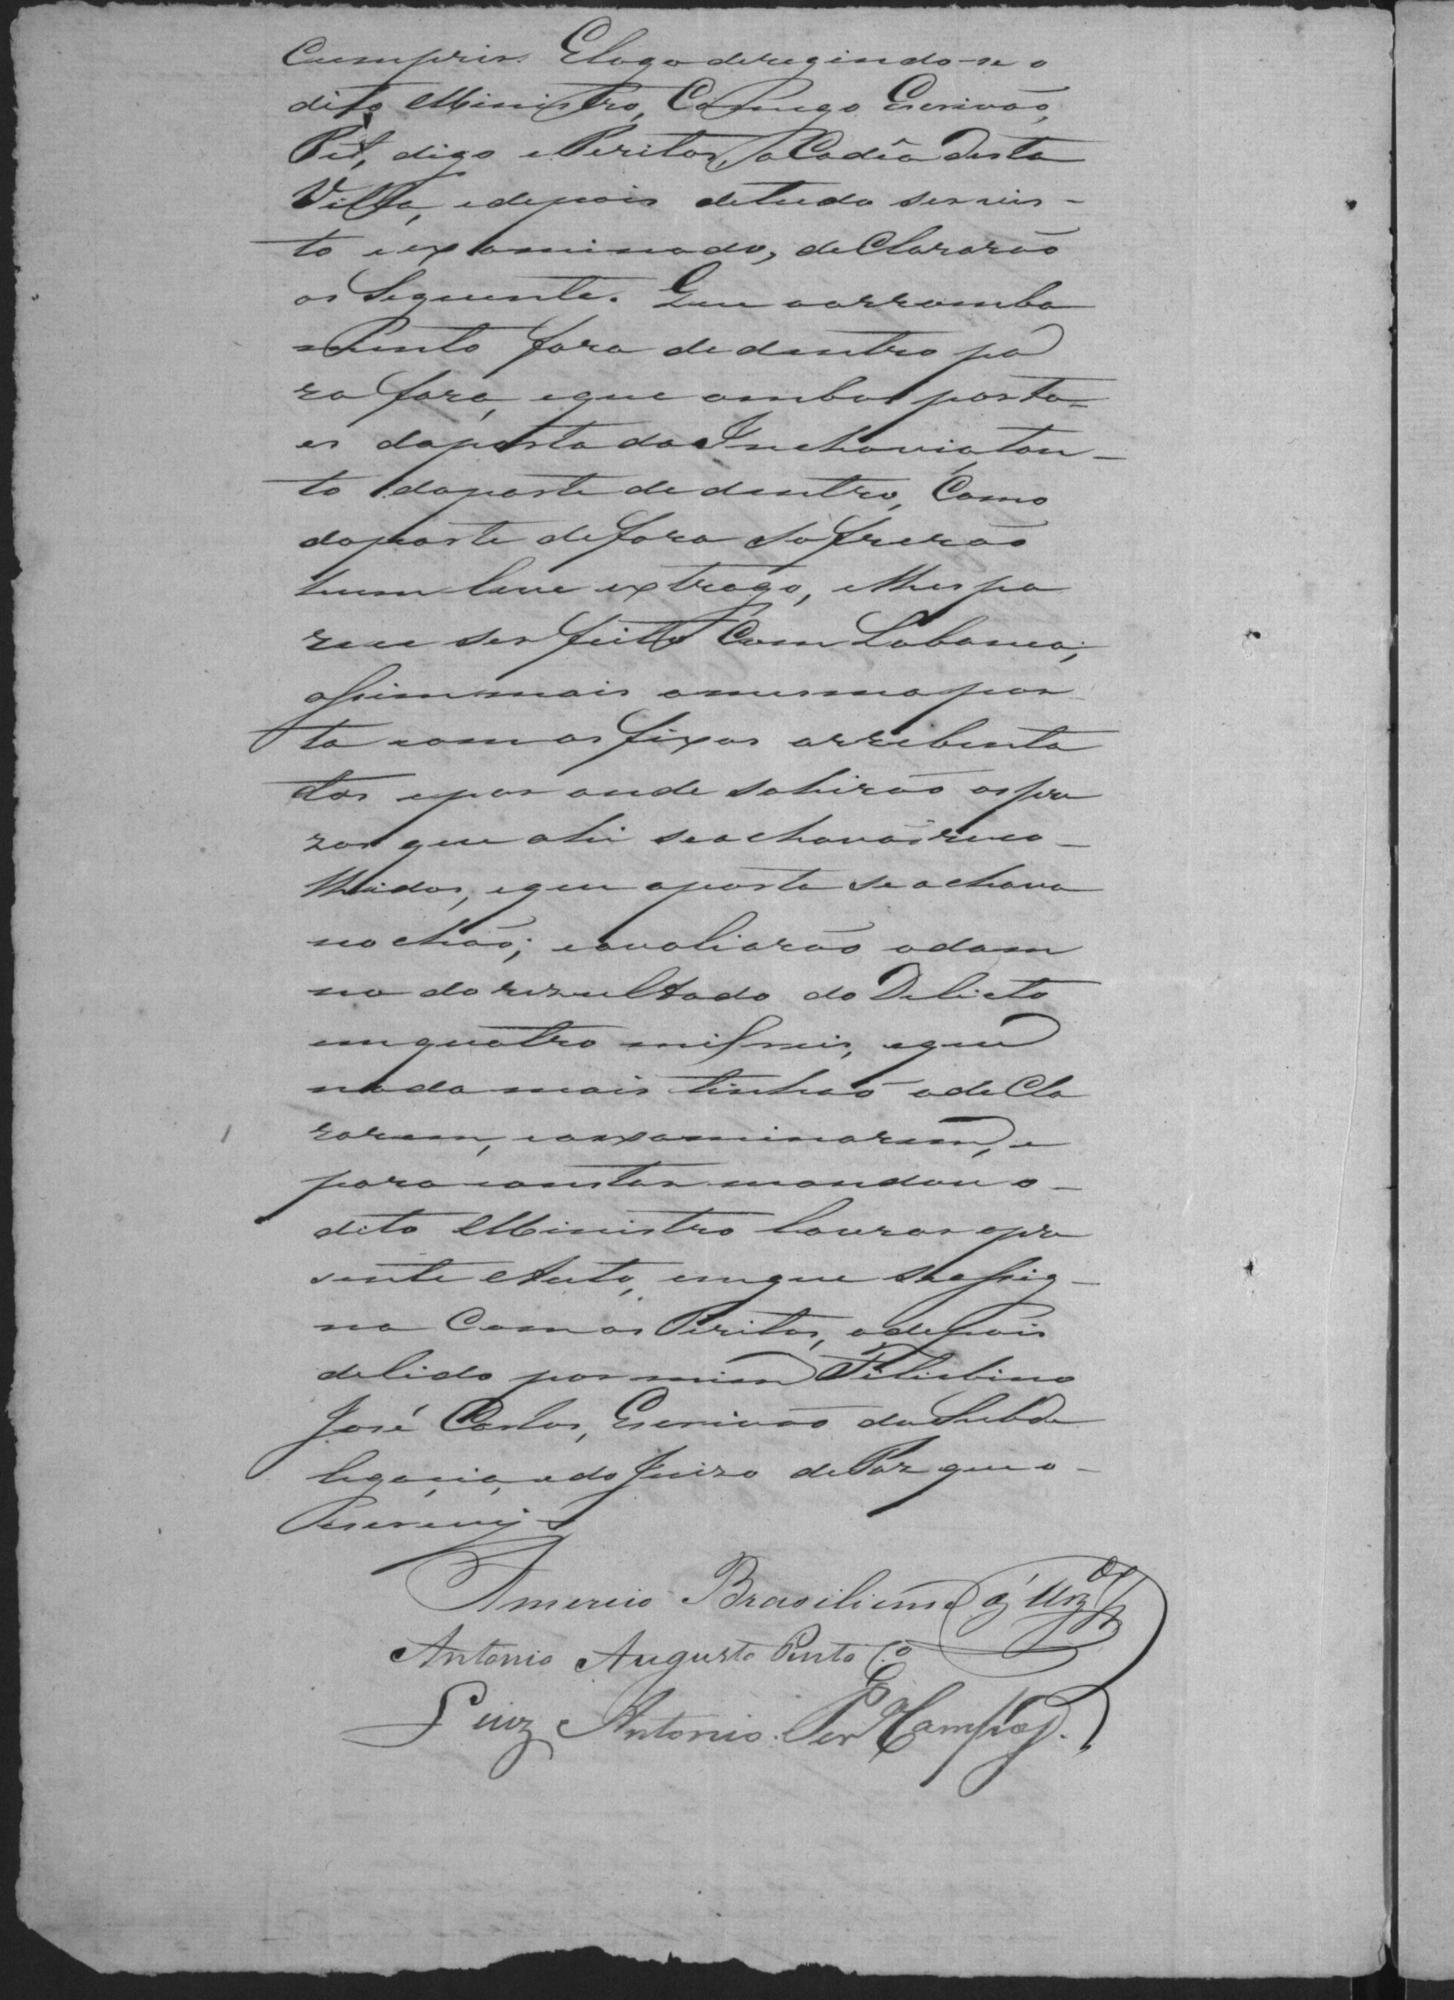 Cumprir. E logo deregindo-se o
dito Ministro, Comigo Escrivão,
Pit, digo e Peritos, a Cadêa desta
Villa, e depois de tudo ser vis-
to e examinado, declararão
os Seguente. Que o arromba
mento fora de dentro pa
ra fora, e que ambos porta-
es da porta da Inchovia, tan-
to da parte de dentro, Como
da parte de fora Sofrerão
hum leve extrago, e lhes pa
receu ser feito Com Labanca;
assim mais a mesma por
ta com as fixas arrebenta
das e por onde Sahirão os pre
zos que ahi se achavão reco-
lhidos, e que a porta se achava
no chão; e avaliarão o dam
no do rezultado do Delicto
em quatro mil reis, e que
nada mais tinhão a decla
rarem, e a examinarem, e
para constar mandou o-
dito Ministro lavrar o pre
sente Auto, em que se assig-
na Com os Peritos, e depois
de lido por mim Felisbino
José Carlos, Escrivão da Subde
legacia, e do Juizo de Paz que o-
escrevy
Americo Brasiliense
Antonio Augusto Pinto
Luiz Antonio Campos.